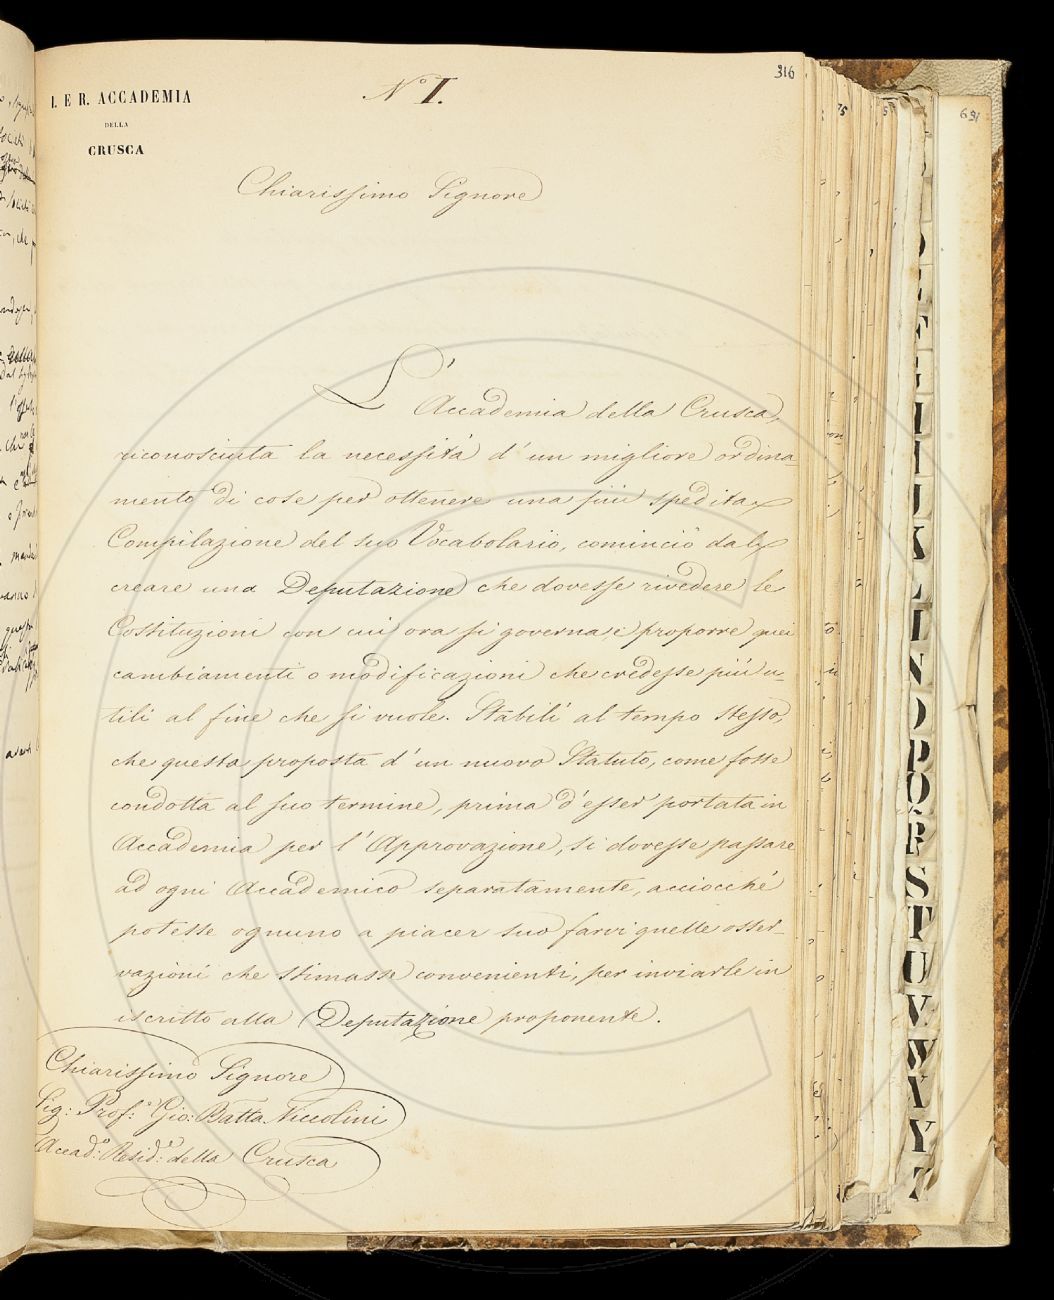 316
I. E R. ACCADEMIA
DELLA
CRUSCA
N.º I.
Chiarissimo Signore
L'Accademia della Crusca,
riconosciuta la necessità d'un migliore ordina-
mento di cose per ottenere una più spedita
Compilazione del suo Vocabolario, cominciò dal
creare una Deputazione che dovesse rivedere le
Costituzioni con cui ora si governa e proporre quei
cambiamenti o modificazioni che credesse più u-
tili al fine che si vuole. Stabilì al tempo stesso,
che questa proposta d'un nuovo Statuto, come fosse
condotta al suo termine, prima d'esser portata in
Accademia per l'Approvazione, si dovesse passare
ad ogni Accademico separatamente, acciocché
potesse ognuno a piacer suo farvi quelle osser-
vazioni che stimasse convenienti, per inviarle in
iscritto alla Deputazione proponente.
Chiarissimo Signore
Sig: Prof: Gio: Batta Niccolini
Accad: Resid: della Crusca
691
K
N
O
P
Q
R
S
T
U
V
W
X
Y
Z